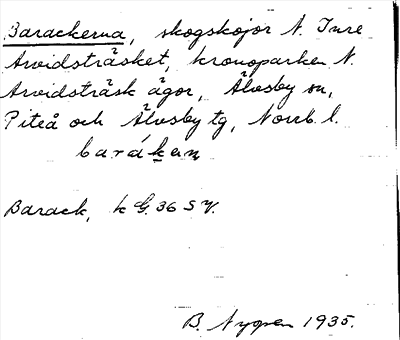 Barackerna, skogskojor N. Inre
Arvidsträsket, kronoparken N.
Arvidsträsk ägor, Älvsby sn,
Piteå och Älvsby tg, Norrb. l.
barákan
Barack, k G. 36 S V.
B. Nygren 1935.